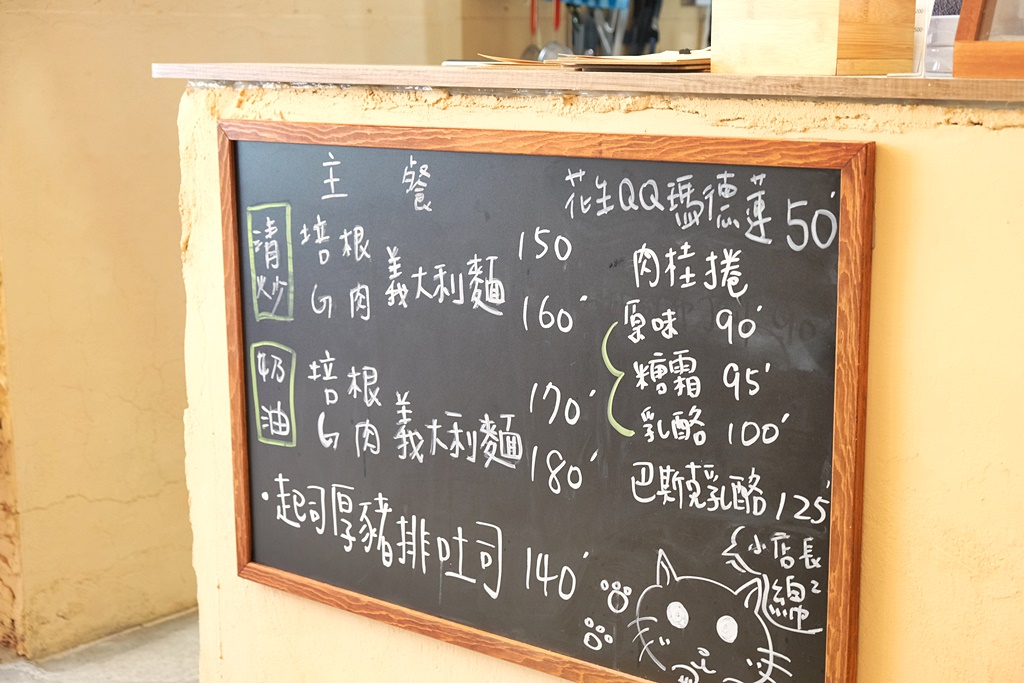 主餐
清炒
培根
150
義大利麵
G肉
160'
奶油
培根
170'
義大利麵
G肉
180'
·起司厚豬排吐司 140'
花生QQ瑪德蓮 50'
肉桂捲
原味 90'
糖霜 95'
乳酪 100'
巴斯克乳酪 125'
小店長
綿2